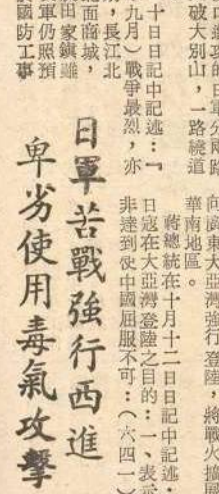 日軍分兩路
破大別山，一路繞道
十日日記中記述：『
九月）戰爭最烈，亦
，長江北
面商城，
田家鎮雖
軍仍照預
國防工事
向廣東大亞灣強行登陸，將戰火擴
華南地區。
蔣總統在十月十二日日記中記述：
日寇在大亞灣登陸之目的：一、表示
非達到使中國屈服不可：（六四一）
日軍苦戰強行西進
卑劣使用毒氣攻擊